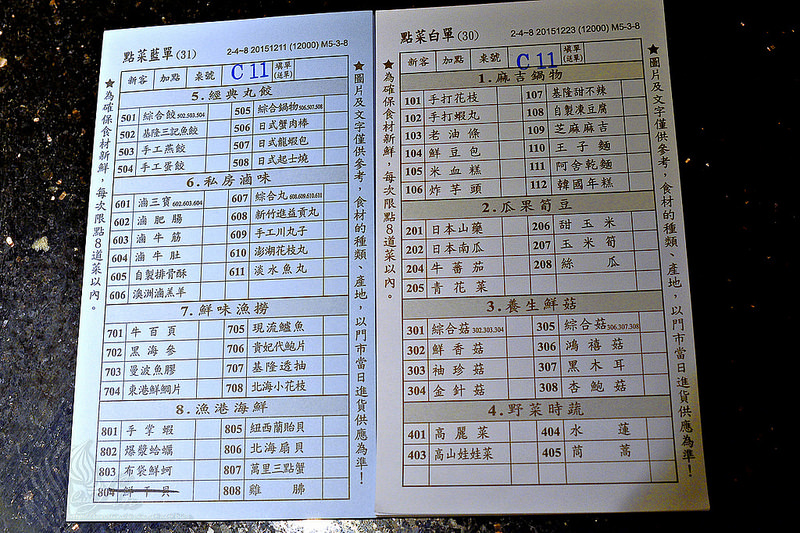 點菜藍單(31) 2-4-8 20151211 (12000) M5-3-8
新客 加點 桌號 C 11 填單(送單)
5.經典丸餃
501 綜合餃502.503.504 505 綜合鍋物506.507.508
502 基隆三記魚餃 506 日式蟹肉棒
503 手工燕餃 507 日式龍蝦包
504 手工蛋餃 508 日式起士燒
6.私房滷味
601 滷三寶602.603.604 607 綜合丸608.609.610.611
602 滷肥腸 608 新竹進益貢丸
603 滷牛筋 609 手工川丸子
604 滷牛肚 610 澎湖花枝丸
605 自製排骨酥 611 淡水魚丸
606 澳洲滷羔羊
7.鮮味漁撈
701 牛百頁 705 現流鱸魚
702 黑海參 706 貴妃代鮑片
703 曼波魚膠 707 基隆透抽
704 東港鮮鯛片 708 北海小花枝
8.漁港海鮮
801 手掌蝦 805 紐西蘭貽貝
802 爆漿蛤蠣 806 北海扇貝
803 布袋鮮蚵 807 萬里三點蟹
804 鮮干貝 808 雞腨
★為確保食材新鮮，每次限點8道菜以內。
★圖片及文字僅供參考，食材的種類、產地，以門市當日進貨供應為準！
點菜白單(30) 2-4-8 20151223 (12000) M5-3-8
新客 加點 桌號 C 11 填單(送單)
1.麻吉鍋物
101 手打花枝 107 基隆甜不辣
102 手打蝦丸 108 自製凍豆腐
103 老油條 109 芝麻麻吉
104 鮮豆包 110 王子麵
105 米血糕 111 阿舍乾麵
106 炸芋頭 112 韓國年糕
2.瓜果筍豆
201 日本山藥 206 甜玉米
202 日本南瓜 207 玉米筍
204 牛蕃茄 208 絲瓜
205 青花菜
3.養生鮮菇
301 綜合菇302.303.304 305 綜合菇306.307.308
302 鮮香菇 306 鴻禧菇
303 袖珍菇 307 黑木耳
304 金針菇 308 杏鮑菇
4.野菜時蔬
401 高麗菜 404 水蓮
403 高山娃娃菜 405 茼蒿
★為確保食材新鮮，每次限點8道菜以內。
★圖片及文字僅供參考，食材的種類、產地，以門市當日進貨供應為準！